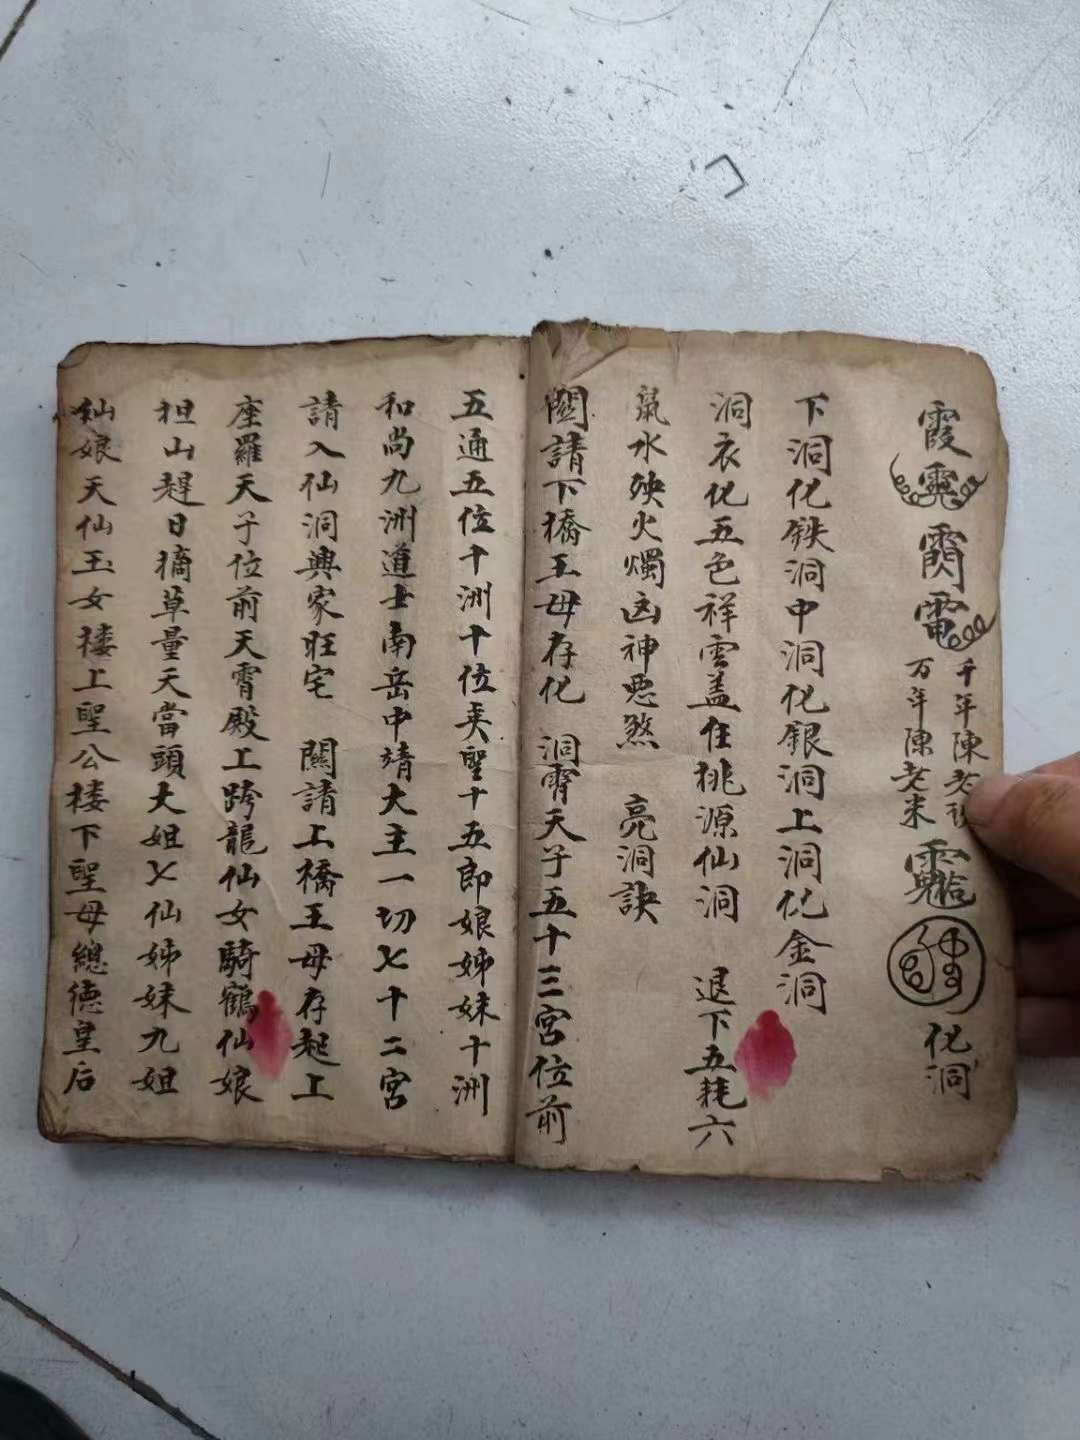 霞 閃電 千年陳老 万年陳老米 化洞
下洞化鉄洞中洞化銀洞上洞化金洞
洞衣化五色祥雲盖住桃源仙洞 退下五耗六
鼠水殃火燭凶神悪煞 亮洞訣
關請下橋王母存化 洞霄天子五十三宮位前
五通五位十洲十位 聖十五郎娘姊妹十洲
和尚九洲道士南岳中靖大主一切七十二宮
請入仙洞興家旺宅 關請上橋王母存起上
座羅天子位前天霄殿上跨龍仙女騎鶴仙娘
担山趕日摘草量天當頭大姐七仙姊妹九姐
仙娘天仙玉女楼上聖公楼下聖母總德皇后